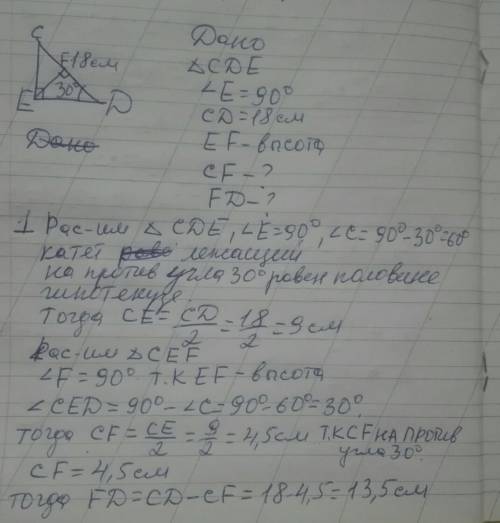 C
F 18см
30°
E
D
Дано
Дано
△CDE
∠E=90°
CD=18см
EF-высота
CF-?
FD-?
1 Рас-им △CDE, ∠E=90°, ∠C=90°-30°=60°
катет лежащий
на против угла 30° равен половине
гипотенузе.
Тогда CE=CD/2=18/2=9см
Рас-им △CEF
∠F=90° т.к EF-высота
∠CED=90°-∠C=90°-60°=30°.
тогда CF=CE/2=9/2=4,5см т.к CF на против
угла 30°.
CF=4,5см
тогда FD=CD-CF=18-4,5=13,5см